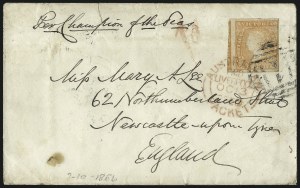 Per Champion of the Seas
Miss Mary A Lee
62 Northumberland Street
Newcastle upon Tyne
England